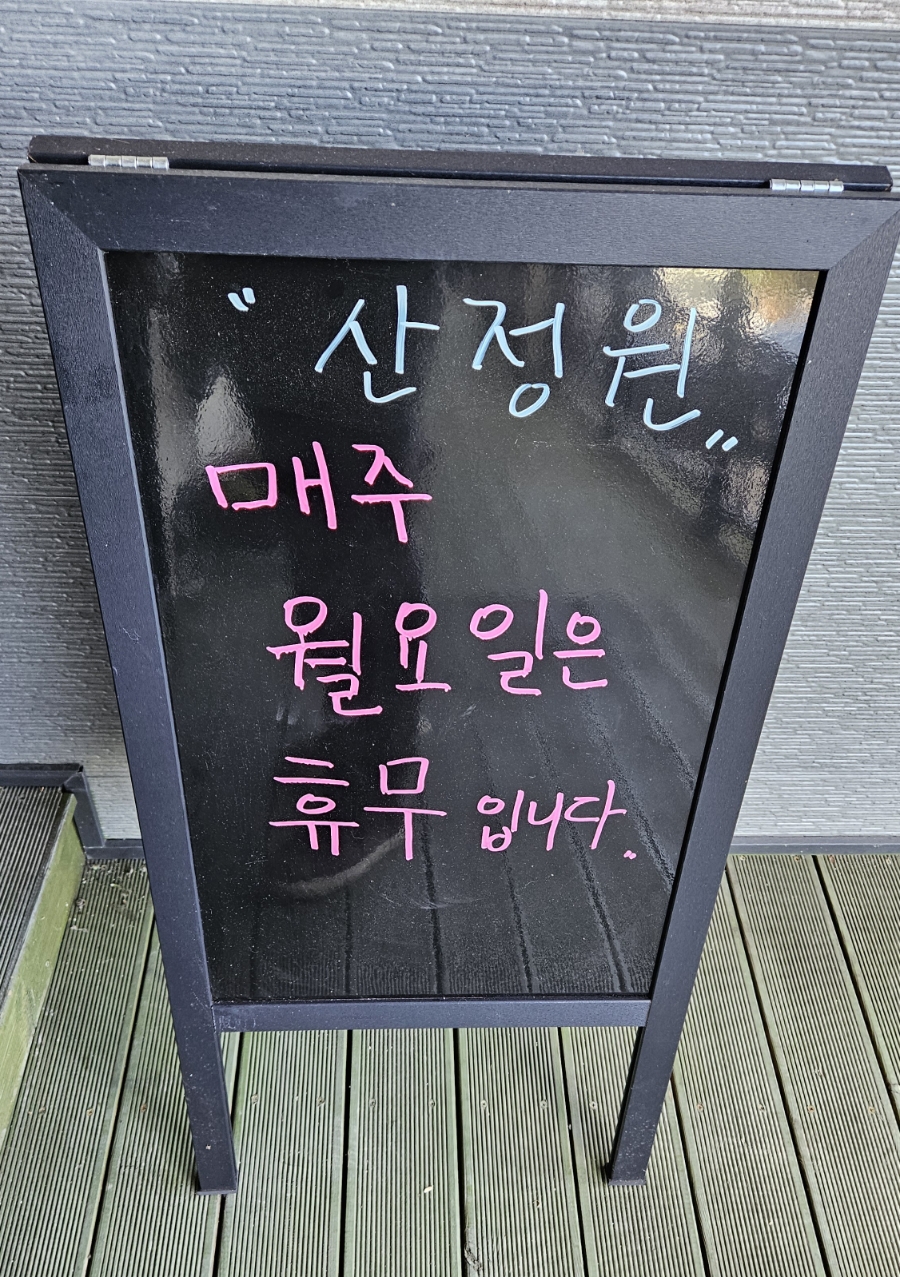 "산정원"
매주
월요일은
휴무 입니다.